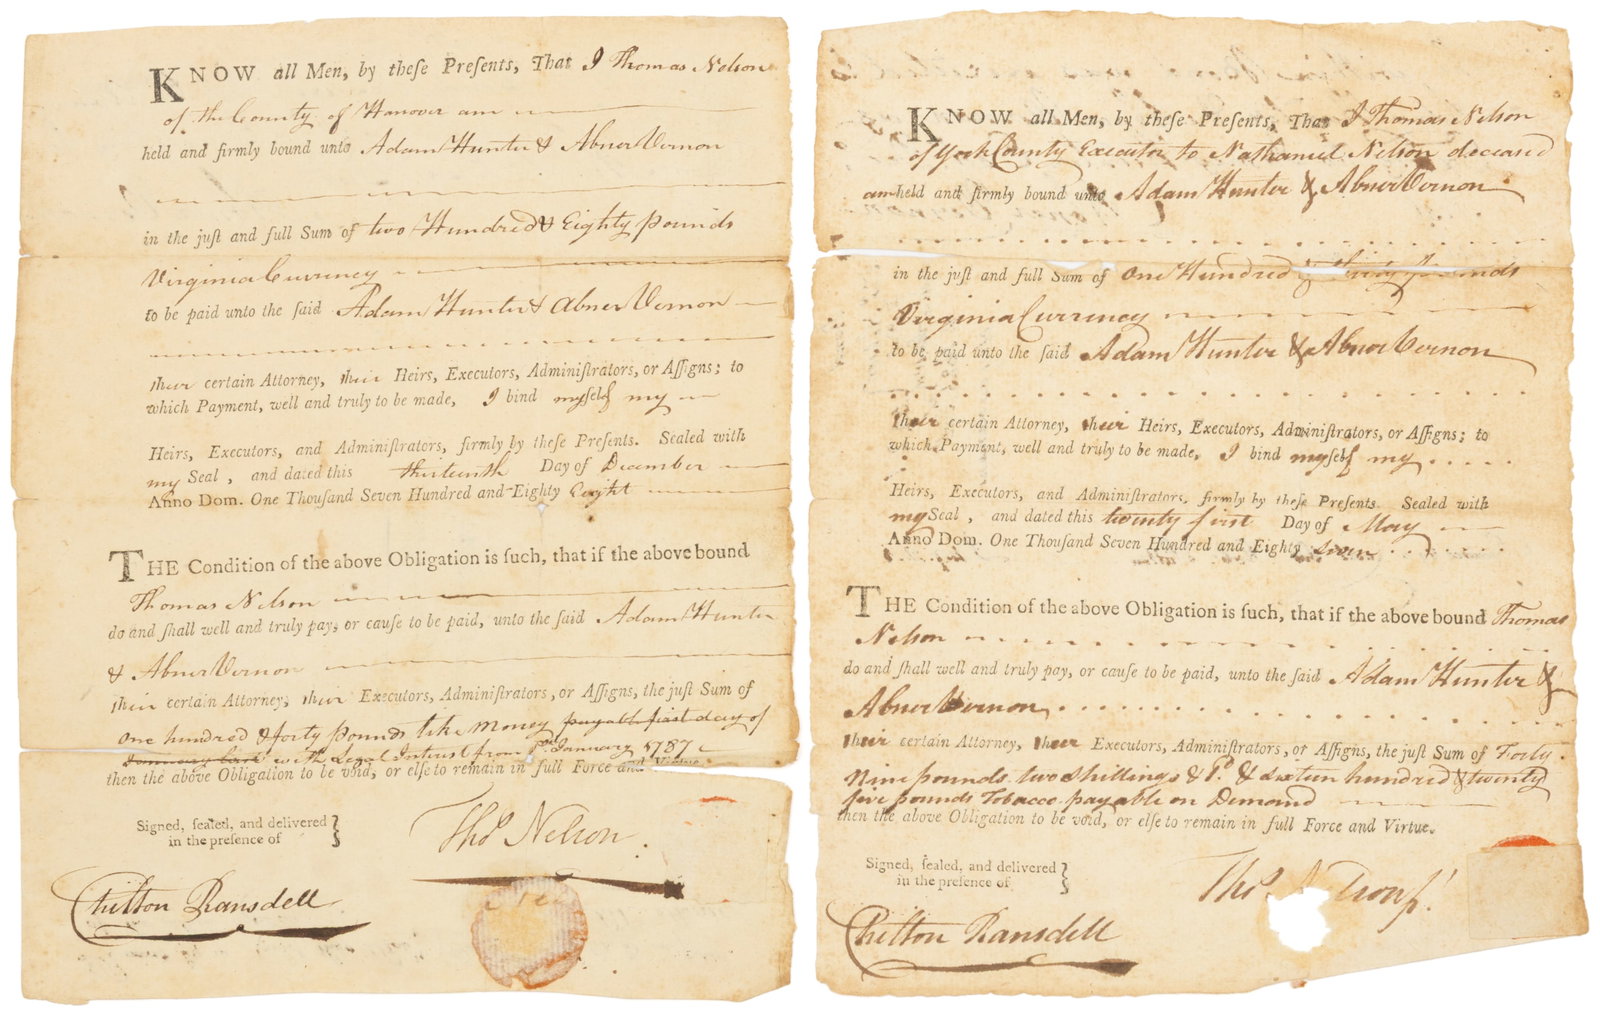 KNOW all Men, by theſe Preſents, That I Thomas Nelson
of the County of Hanover am
held and firmly bound unto Adam Hunter & Abner Vernon
in the juſt and full Sum of two Hundred & Eighty pounds
Virginia Currency
to be paid unto the ſaid Adam Hunter & Abner Vernon
their certain Attorney, their Heirs, Executors, Adminiſtrators, or Aſſigns; to
which Payment, well and truly to be made, I bind myself my
Heirs, Executors, and Adminiſtrators, firmly by theſe Preſents. Sealed with
my Seal, and dated this thirteenth Day of December
Anno Dom. One Thouſand Seven Hundred and Eighty Eight
THE Condition of the above Obligation is ſuch, that if the above bound
Thomas Nelson
do and ſhall well and truly pay, or cauſe to be paid, unto the ſaid Adam Hunter
& Abner Vernon
their certain Attorney, their Executors, Adminiſtrators, or Aſſigns, the juſt Sum of
One hundred & forty pounds like Money payable first day of
January last with Legal Interest from 1st January 1787
then the above Obligation to be void, or elſe to remain in full Force and Virtue.
Signed, ſealed, and delivered
in the preſence of
Thos Nelson
Chilton Ransdell
KNOW all Men, by theſe Preſents, That I Thomas Nelson
of York County Executor to Nathaniel Nelson deceased
am held and firmly bound unto Adam Hunter & Abner Vernon
in the juſt and full Sum of One Hundred & thirty pounds
Virginia Currency
to be paid unto the ſaid Adam Hunter & Abner Vernon
their certain Attorney, their Heirs, Executors, Adminiſtrators, or Aſſigns; to
which Payment, well and truly to be made, I bind myself my
Heirs, Executors, and Adminiſtrators, firmly by theſe Preſents. Sealed with
my Seal, and dated this twenty first Day of May
Anno Dom. One Thouſand Seven Hundred and Eighty seven
THE Condition of the above Obligation is ſuch, that if the above bound Thomas
Nelson
do and ſhall well and truly pay, or cauſe to be paid, unto the ſaid Adam Hunter &
Abner Vernon
their certain Attorney, their Executors, Adminiſtrators, or Aſſigns, the juſt Sum of Forty
Nine pounds two shillings & & sixteen hundred & twenty
five pounds Tobacco payable on Demand
then the above Obligation to be void, or elſe to remain in full Force and Virtue.
Signed, ſealed, and delivered
in the preſence of
Thos
Chilton Ransdell